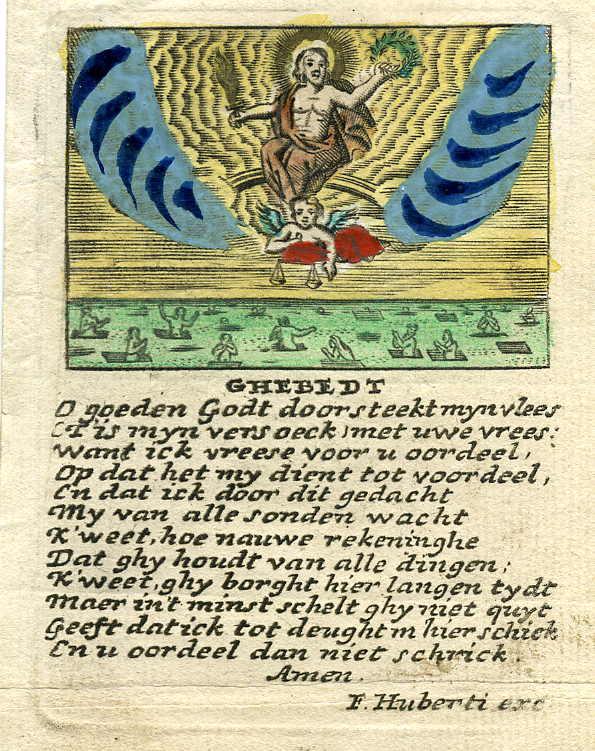 GHEBEDT
O goeden Godt doorsteekt myn vlees
(T'is myn versoeck) met uwe vrees:
Want ick vreese voor u oordeel,
Op dat het my dient tot voordeel,
En dat ick door dit gedacht
My van alle sonden wacht
K'weet, hoe nauwe rekeninghe
Dat ghy houdt van alle dingen;
K'weet, ghy borght hier langen tydt
Maer in't minst schelt ghy niet quyt
Geeft dat ick tot deught m hier schick
En u oordeel dan niet schrick.
Amen.
F. Huberti exc